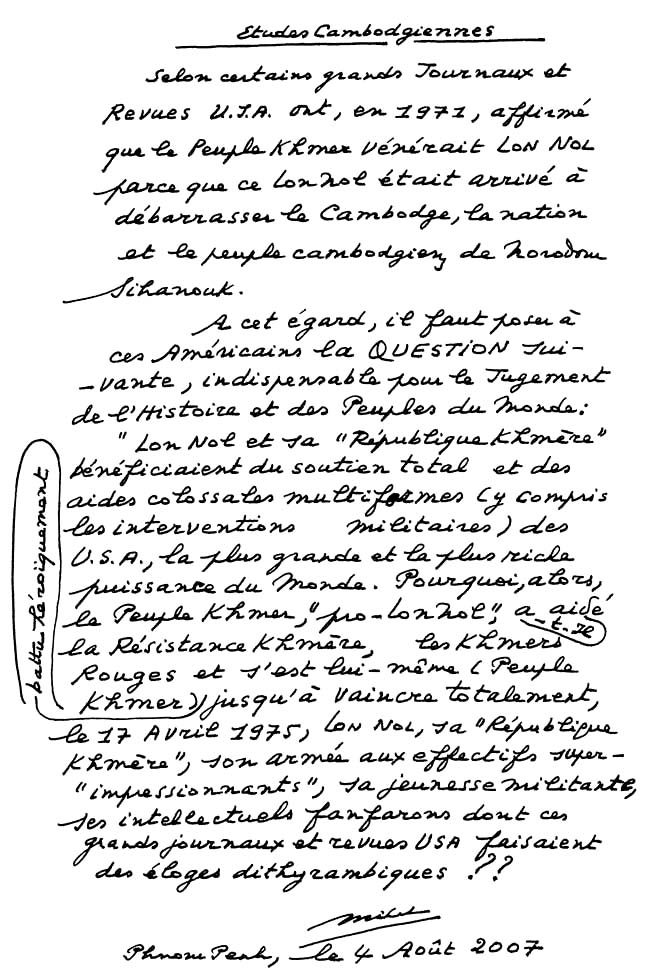 Etudes Cambodgiennes
Selon certains grands Journaux et
Revues U.S.A. ont, en 1971, affirmé
que le Peuple Khmer vénérait LON NOL
parce que ce Lon Nol était arrivé à
débarrasser le Cambodge, la nation
et le peuple cambodgien, de Norodom
Sihanouk.
A cet égard, il faut poser à
ces Américains la QUESTION sui-
-vante, indispensable pour le Jugement
de l'Histoire et des Peuples du Monde:
"Lon Nol et sa "République Khmère"
bénéficiaient du soutien total et des
aides colossales multiformes (y compris
les interventions militaires) des
U.S.A., la plus grande et la plus riche
puissance du Monde. Pourquoi, alors,
le Peuple Khmer, "pro-Lon Nol", a aidé
-t-il
la Résistance Khmère, les Khmers
Rouges et s'est lui-même (Peuple
Khmer) jusqu'à vaincre totalement,
battu héroïquement
le 17 Avril 1975, Lon Nol, sa "République
Khmère", son armée aux effectifs super-
"impressionnants", sa jeunesse militante,
ses intellectuels fanfarons dont ces
grands journaux et revues USA faisaient
des éloges dithyrambiques ??
Phnom Penh, le 4 Août 2007